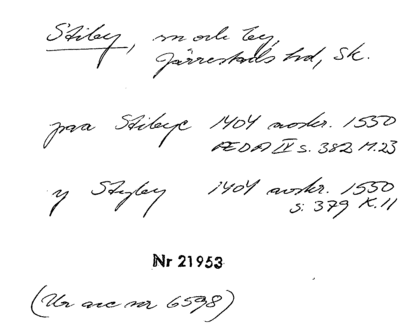 Stiby, sn och by,
Järrestads hd, Sk.
paa Stibye 1404 avskr. 1550
ÆDA IV s. 382 M.23
y Styby 1404 avskr. 1550
s. 379 K.11
Nr 21953
(Ur acc nr 6598)